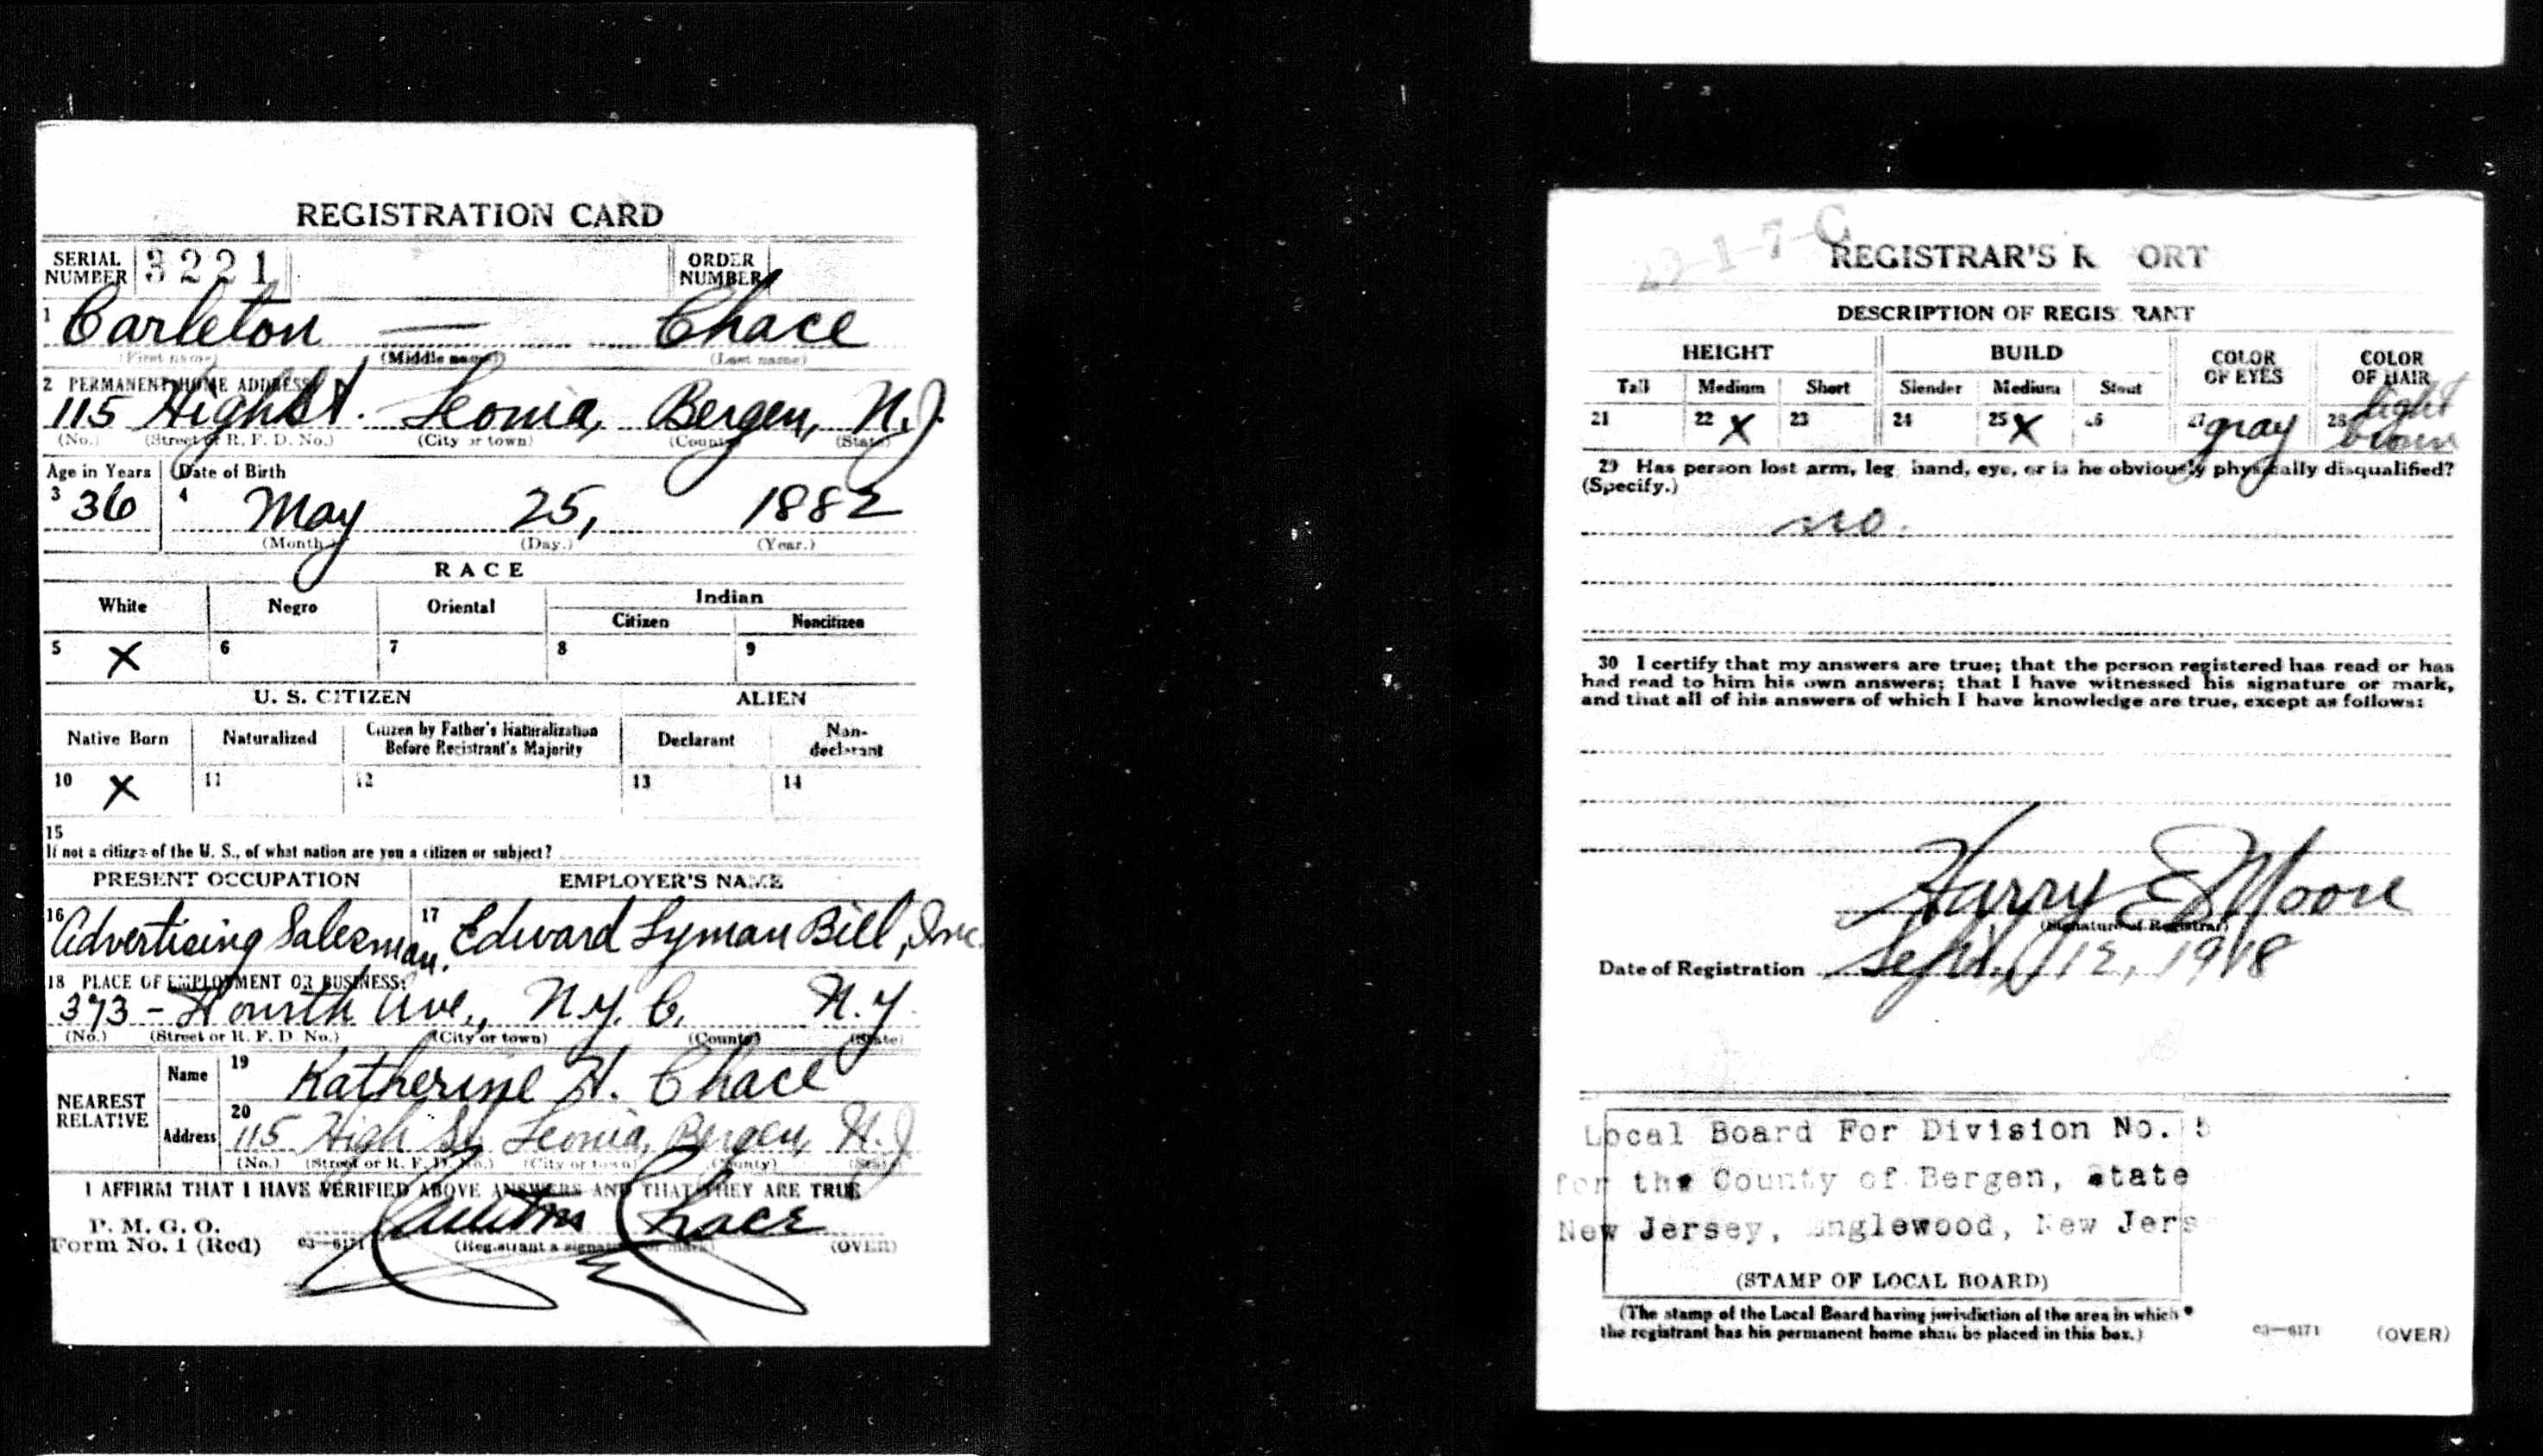 REGISTRATION CARD
SERIAL NUMBER 3221 ORDER NUMBER
1 Carleton — Chace
(First name) (Middle name) (Last name)
2 PERMANENT HOME ADDRESS
115 High St. Leonia, Bergen, N.J.
(No.) (Street or R. F. D. No.) (City or town) (County) (State)
Age in Years Date of Birth
3 36 4 May 25, 1882
(Month.) (Day.) (Year.)
RACE
White Negro Oriental Indian
Citizen Noncitizen
5 X 6 7 8 9
U. S. CITIZEN ALIEN
Native Born Naturalized Citizen by Father's Naturalization Before Registrant's Majority Declarant Non-declarant
10 X 11 12 13 14
15
If not a citizen of the U. S., of what nation are you a citizen or subject?
PRESENT OCCUPATION EMPLOYER'S NAME
16 Advertising Salesman. 17 Edward Lyman Bill, Inc.
18 PLACE OF EMPLOYMENT OR BUSINESS:
373 - Fourth Ave., N.Y.C. N.Y.
(No.) (Street or R. F. D. No.) (City or town) (County) (State)
NEAREST RELATIVE
Name 19 Katherine H. Chace
Address 20 115 High St. Leonia, Bergen, N.J
(No.) (Street or R. F. D. No.) (City or town) (County) (State)
I AFFIRM THAT I HAVE VERIFIED ABOVE ANSWERS AND THAT THEY ARE TRUE
P. M. G. O.
Form No. 1 (Red) 03—6171 Carleton Chace
(Registrant's signature or mark) (OVER)
-1-7-C
REGISTRAR'S R ORT
DESCRIPTION OF REGIS RANT
HEIGHT BUILD COLOR OF EYES COLOR OF HAIR
Tall Medium Short Slender Medium Stout
21 22 X 23 24 25 X 26 27 gray 28 light brown
29 Has person lost arm, leg, hand, eye, or is he obviously physically disqualified?
(Specify.)
no.
30 I certify that my answers are true; that the person registered has read or has
had read to him his own answers; that I have witnessed his signature or mark,
and that all of his answers of which I have knowledge are true, except as follows:
Harry E Moore
(Signature of Registrar)
Date of Registration Sept. 12, 1918
Local Board For Division No. 5
for the County of Bergen, State
New Jersey, Englewood, New Jers
(STAMP OF LOCAL BOARD)
(The stamp of the Local Board having jurisdiction of the area in which
the registrant has his permanent home shall be placed in this box.)
03—6171 (OVER)